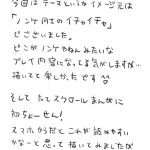 今回は テーマというか イメージ元は
「ノンケ同士のイチャイチャ」
でございました。
どこがノンケやねんみたいな
プレイ内容になってる気がしますが…
描いてて楽しかったです
そして たてスクロールまんがに
初ちょーせん!
スマホからだとこれが読みやすい
かなーと思って描いてみましたが